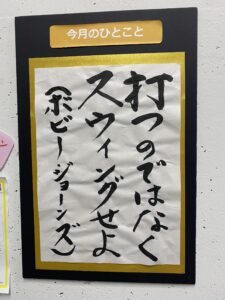 今月のひとこと
打つのではなく
スウィングせよ
(ボビージョーンズ)